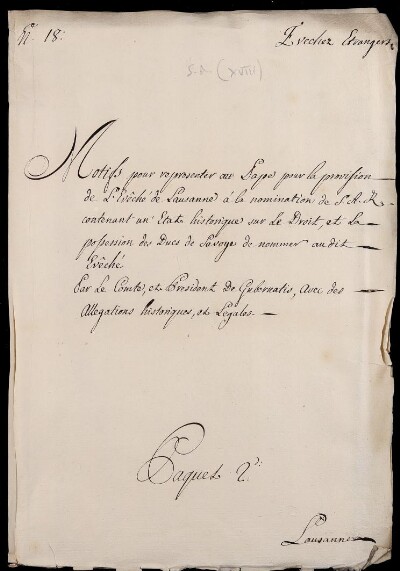 N.º 18:
Evechez Etrangers
S. d. (XVIII)
Motifs pour representer au Pape pour la provision
de L'Evêché de Lausanne á la nomination de S. A. R.
contenant un' Etat historique sur Le Droit, et La
possession des Ducs de Savoye de nommer audit
Evêché
Par Le Comte, et President De Gubernatis, Avec des
Allegations historiques, et Legales
Paquet 2.d:
Lausanne